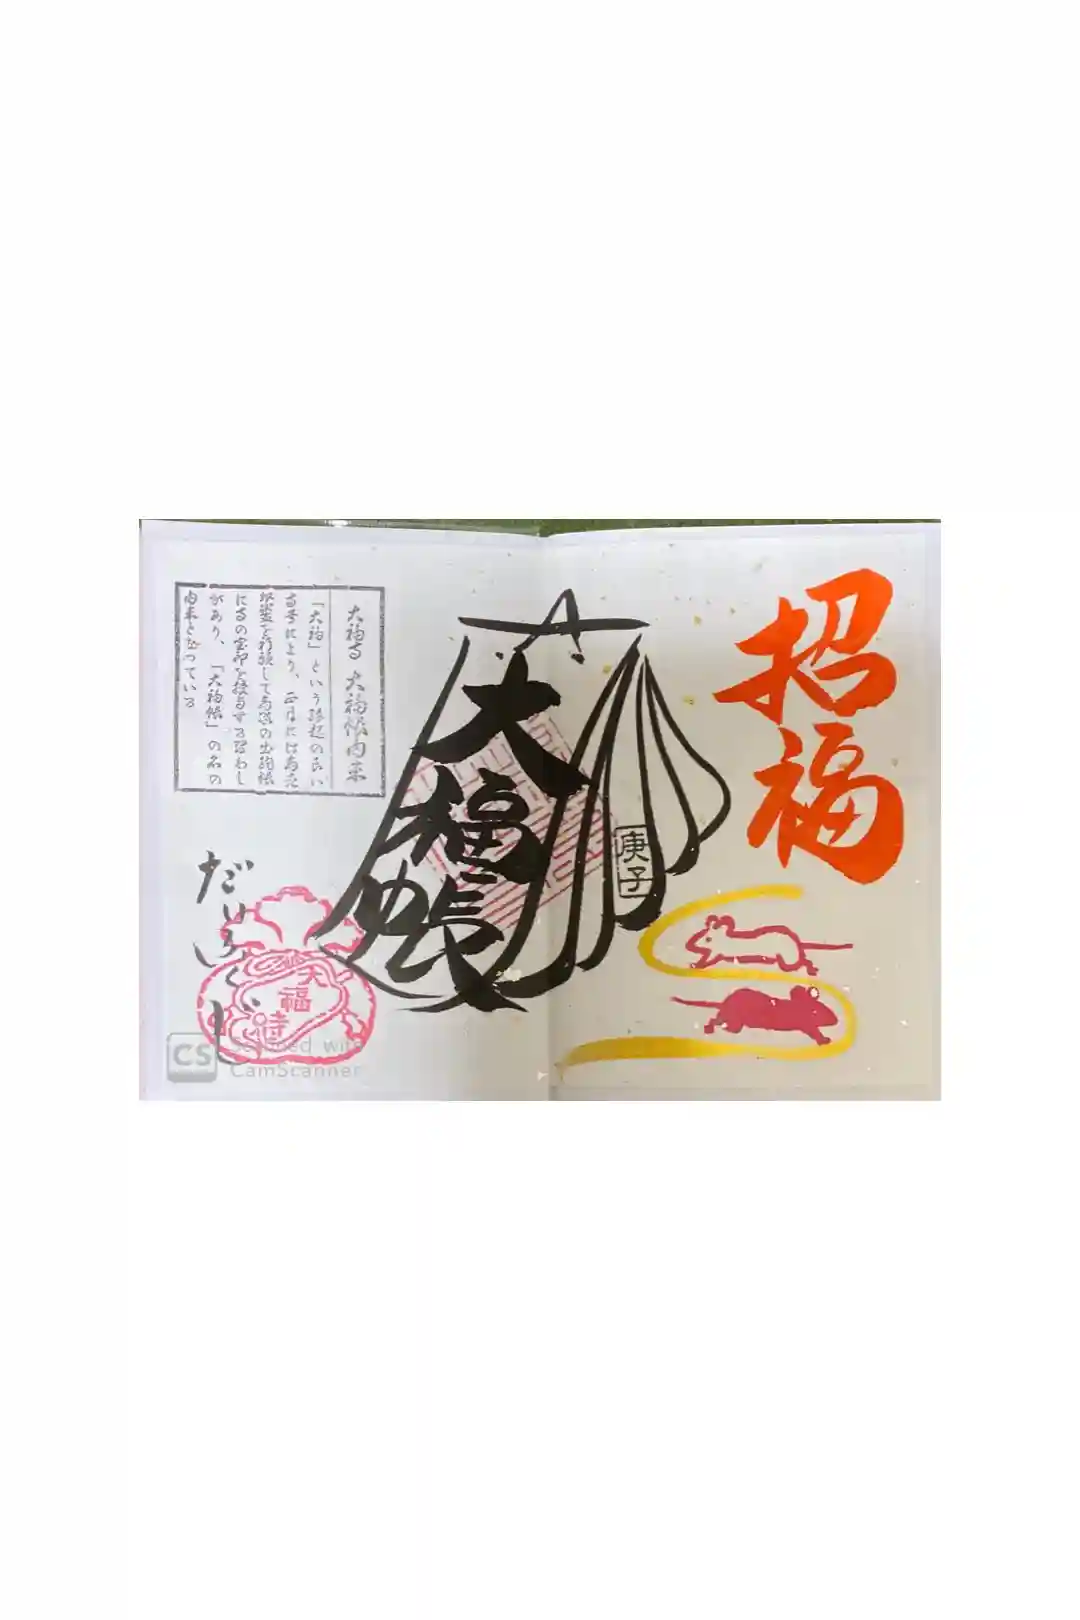 招福
庚子
大福帳
大福寺 大福帳由来
「大福」という縁起の良い
寺号により、正月には商売
繁盛を祈願して商家の出納帳
に寺の宝印を授与する習わし
があり、「大福帳」の名の
由来となっている
だいふくじ
大
福
寺
CS Scanned with
CamScanner